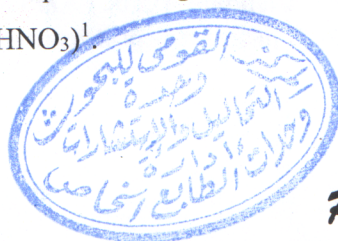 HNO₃)¹.
القومى للبحوث
وحدة
التحاليل والإستشارات
إدارة
وحدات الطابع الخاص